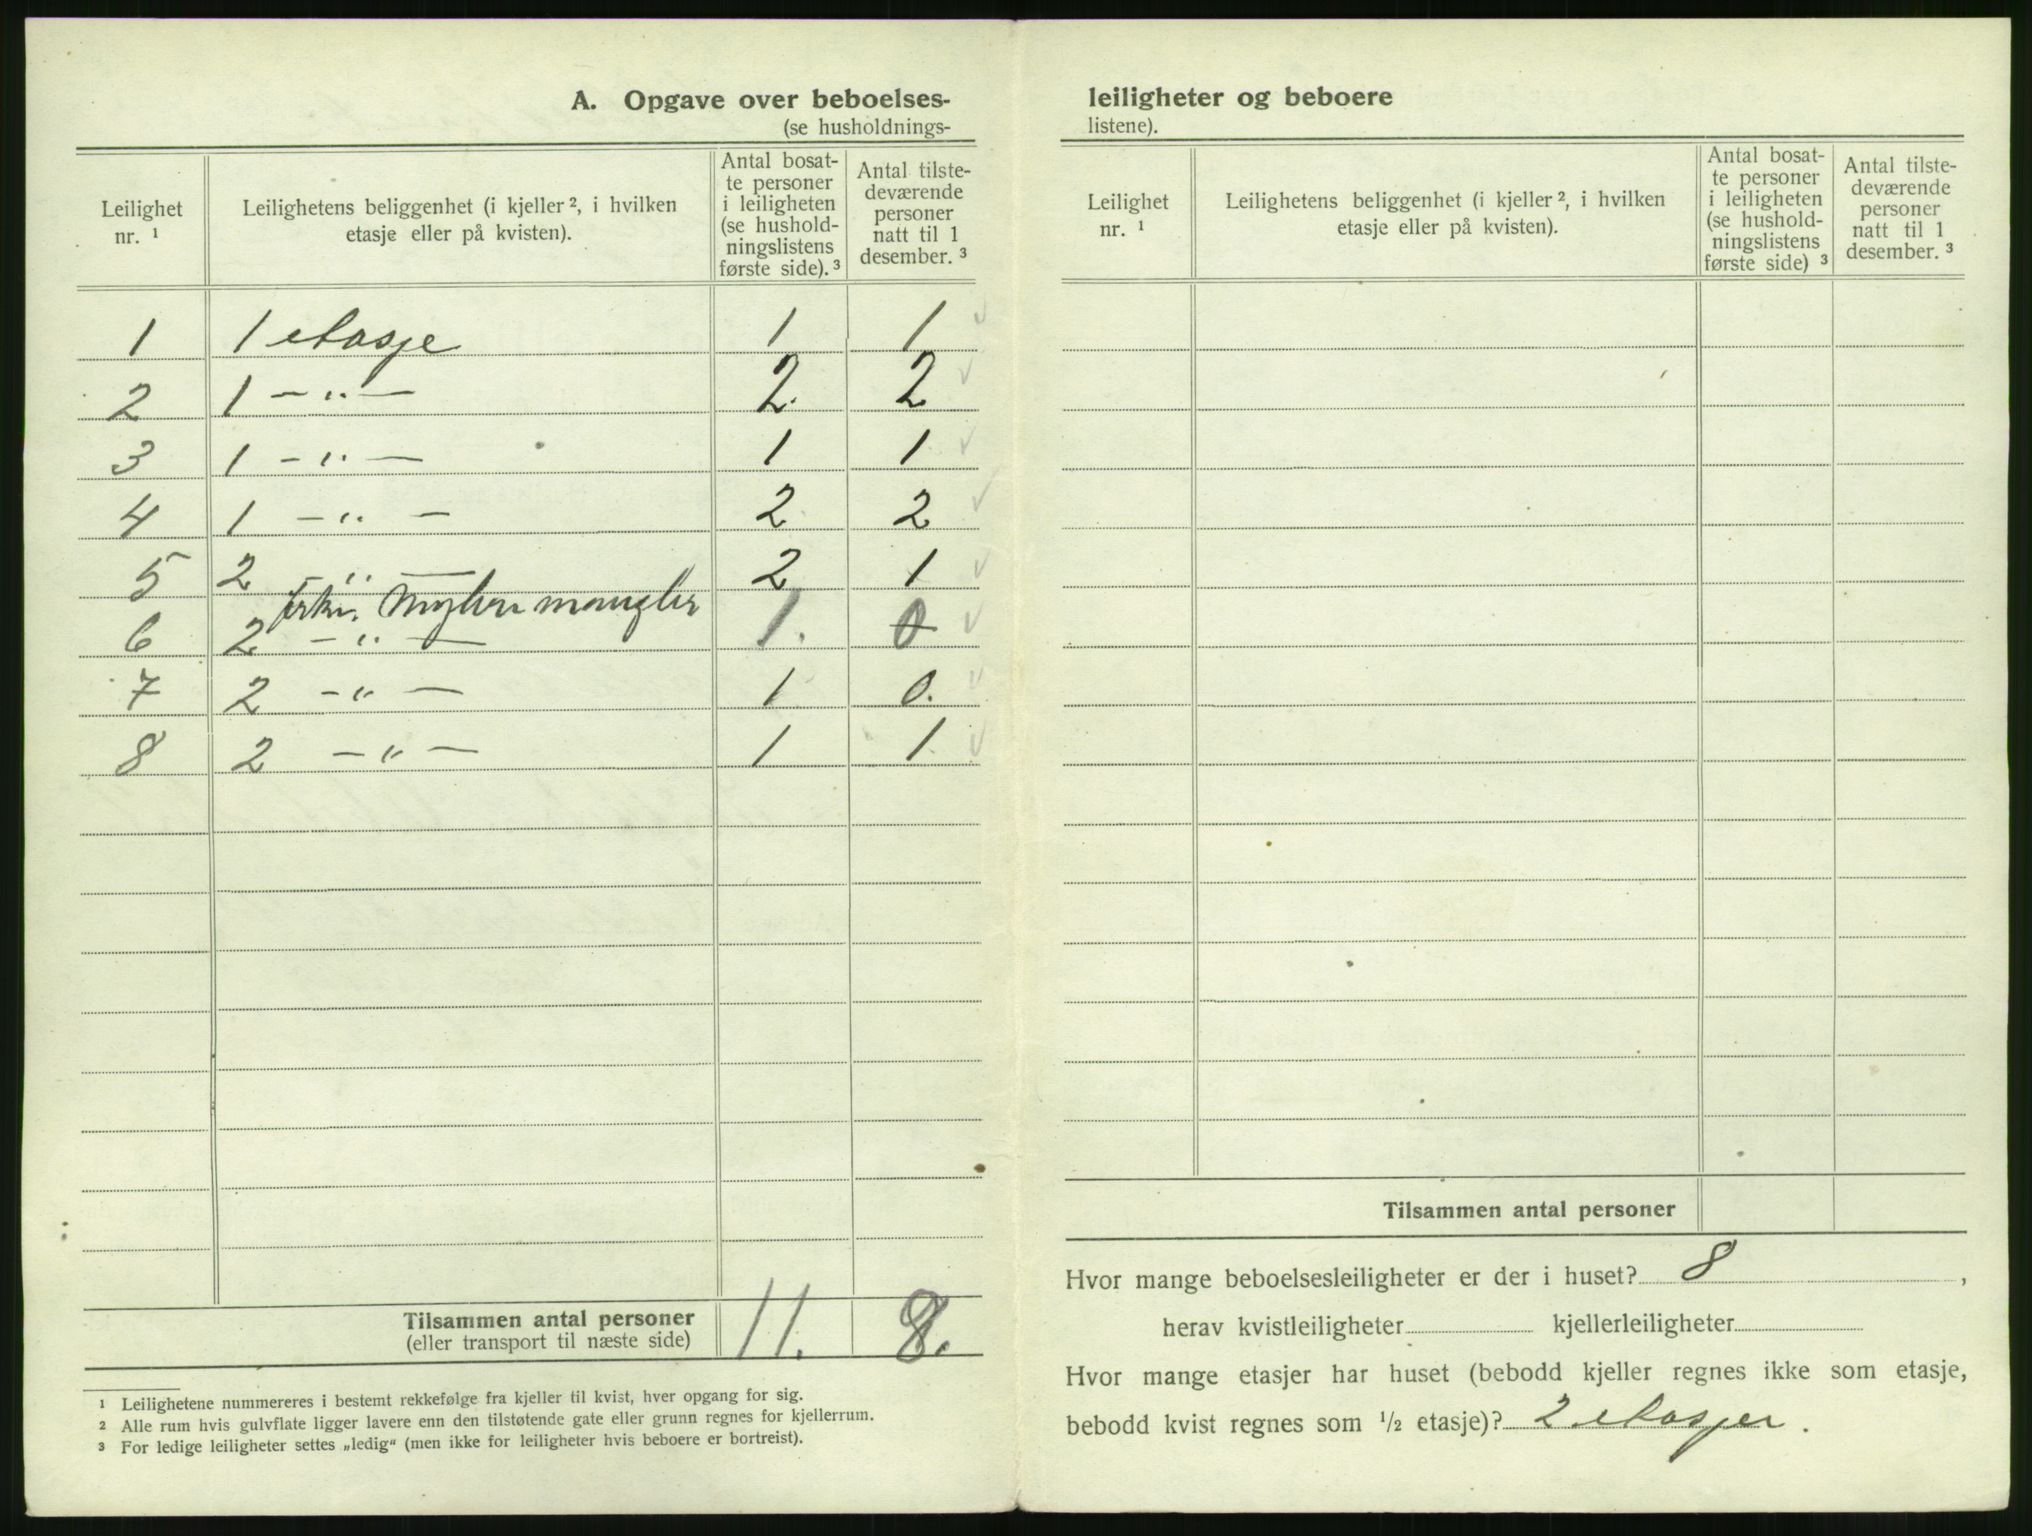 A. Opgave over beboelses-
(se husholdnings-
Leilighet nr. ¹
Leilighetens beliggenhet (i kjeller ², i hvilken etasje eller på kvisten).
Antal bosat-
te personer
i leiligheten
(se hushold-
ningslistens
første side). ³
Antal tilste-
deværende
personer
natt til 1
desember. ³
1 1 etasje 1 1
2 1 – „ – 2. 2
3 1 – „ – 1 1
4 1 – „ – 2 2
5 2 „ — 2 1
mangler
6 2 – „ — 1. 0
7 2 – „ – 1 0.
8 2 – „ – 1 1
Tilsammen antal personer 11. 8.
(eller transport til næste side)
¹ Leilighetene nummereres i bestemt rekkefølge fra kjeller til kvist, hver opgang for sig.
² Alle rum hvis gulvflate ligger lavere enn den tilstøtende gate eller grunn regnes for kjellerrum.
³ For ledige leiligheter settes „ledig“ (men ikke for leiligheter hvis beboere er bortreist).
leiligheter og beboere
listene).
Leilighet nr. ¹
Leilighetens beliggenhet (i kjeller ², i hvilken etasje eller på kvisten).
Antal bosat-
te personer
i leiligheten
(se hushold-
ningslistens
første side) ³
Antal tilste-
deværende
personer
natt til 1
desember. ³
Tilsammen antal personer
Hvor mange beboelsesleiligheter er der i huset? 8 ,
herav kvistleiligheter kjellerleiligheter
Hvor mange etasjer har huset (bebodd kjeller regnes ikke som etasje,
bebodd kvist regnes som ½ etasje)? 2 etasjer .